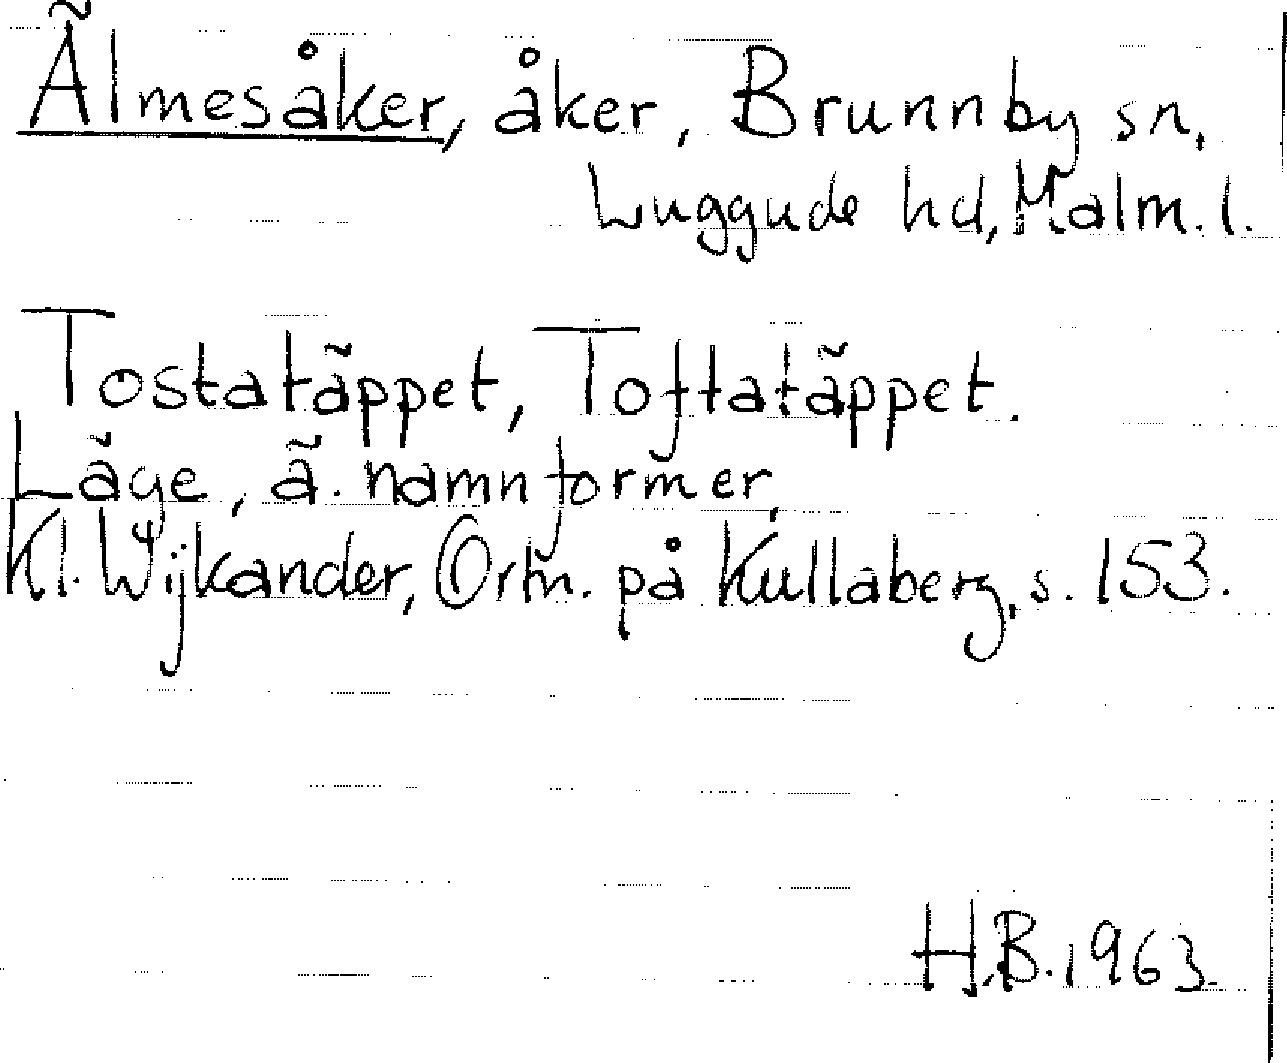 Älmesåker, åker, Brunnby sn.
Luggude hd, Malm. l.
Tostatäppet, Toftatäppet.
Läge, ä. namnformer.
Kl. Wijkander, Ortn. på Kullaberg, s. 153.
H.B. 1963.